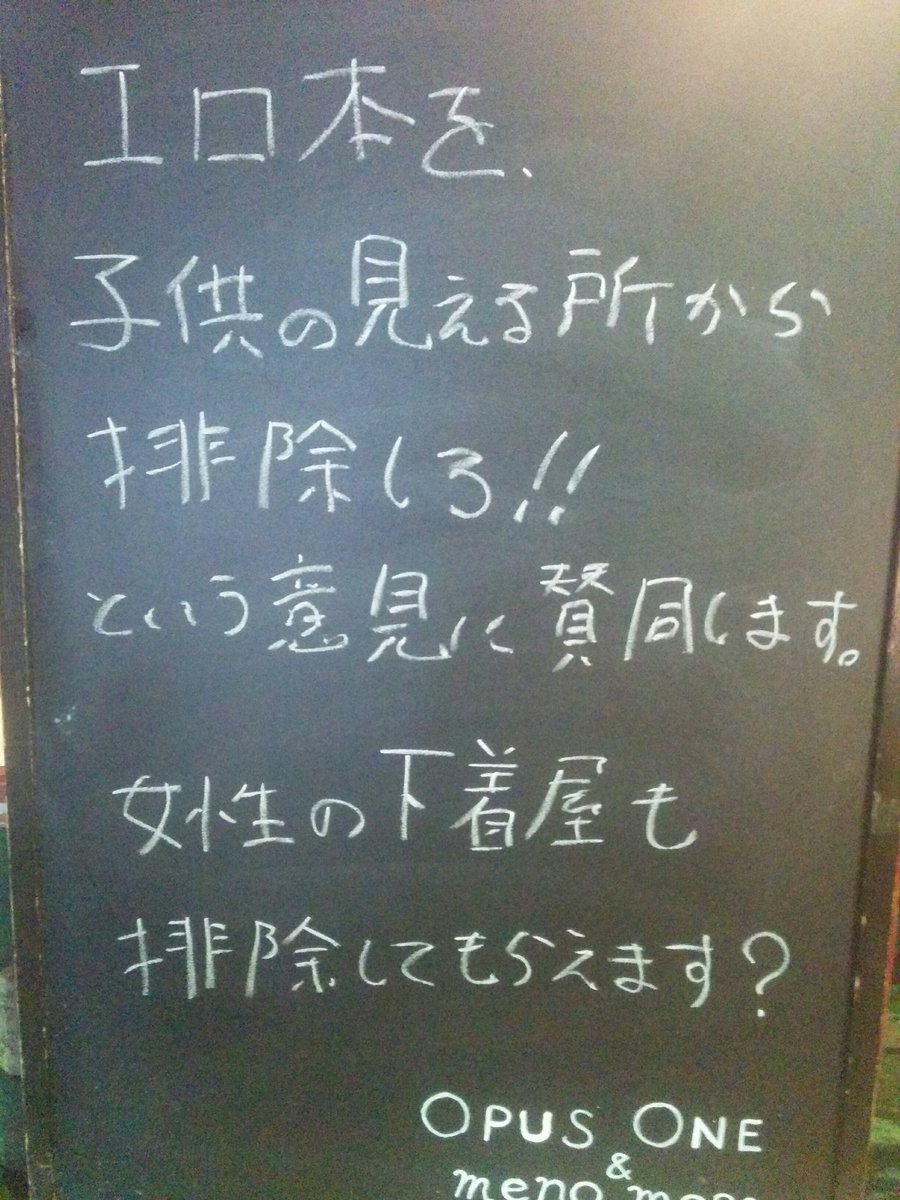 エロ本を、
子供の見える所から
排除しろ!!
という意見に賛同します。
女性の下着屋も
排除してもらえます?
OPUS ONE
&
meno